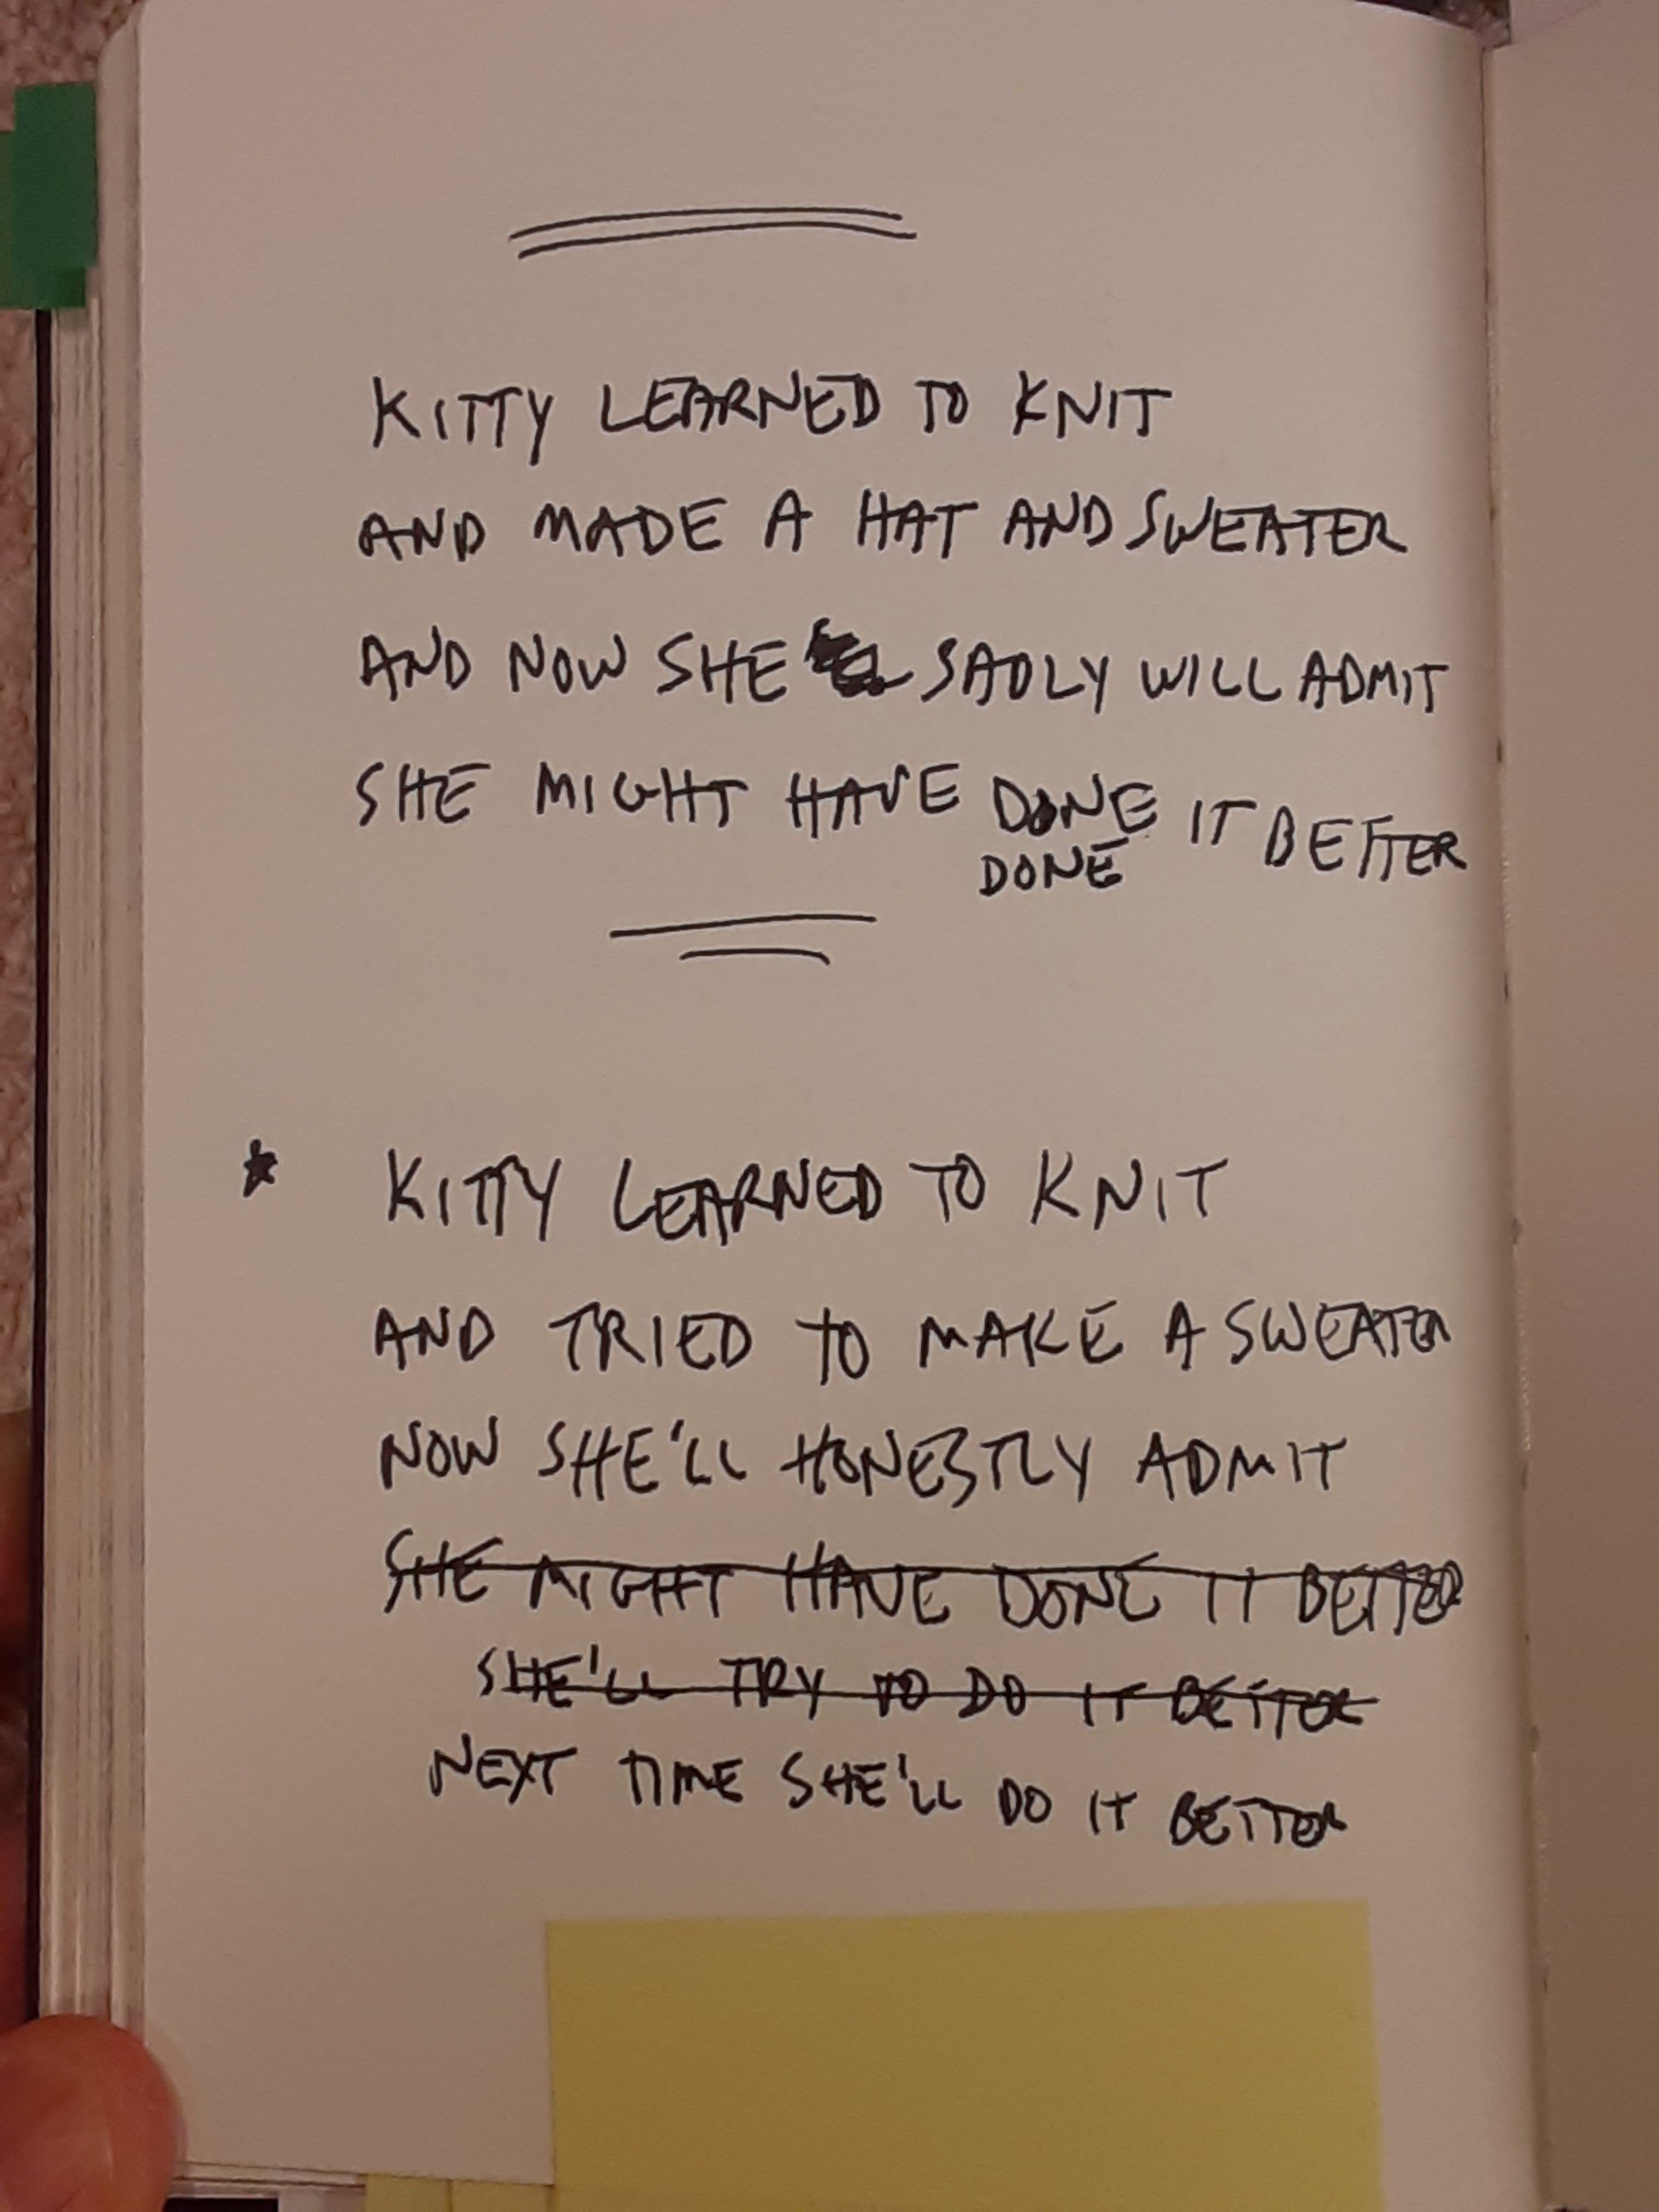 KITTY LEARNED TO KNIT
AND MADE A HAT AND SWEATER
AND NOW SHE SADLY WILL ADMIT
SHE MIGHT HAVE DONE IT BETTER
DONE
KITTY LEARNED TO KNIT
AND TRIED TO MAKE A SWEATER
NOW SHE'LL HONESTLY ADMIT
SHE MIGHT HAVE DONE IT BETTER
SHE'LL TRY TO DO IT BETTER
NEXT TIME SHE'LL DO IT BETTER